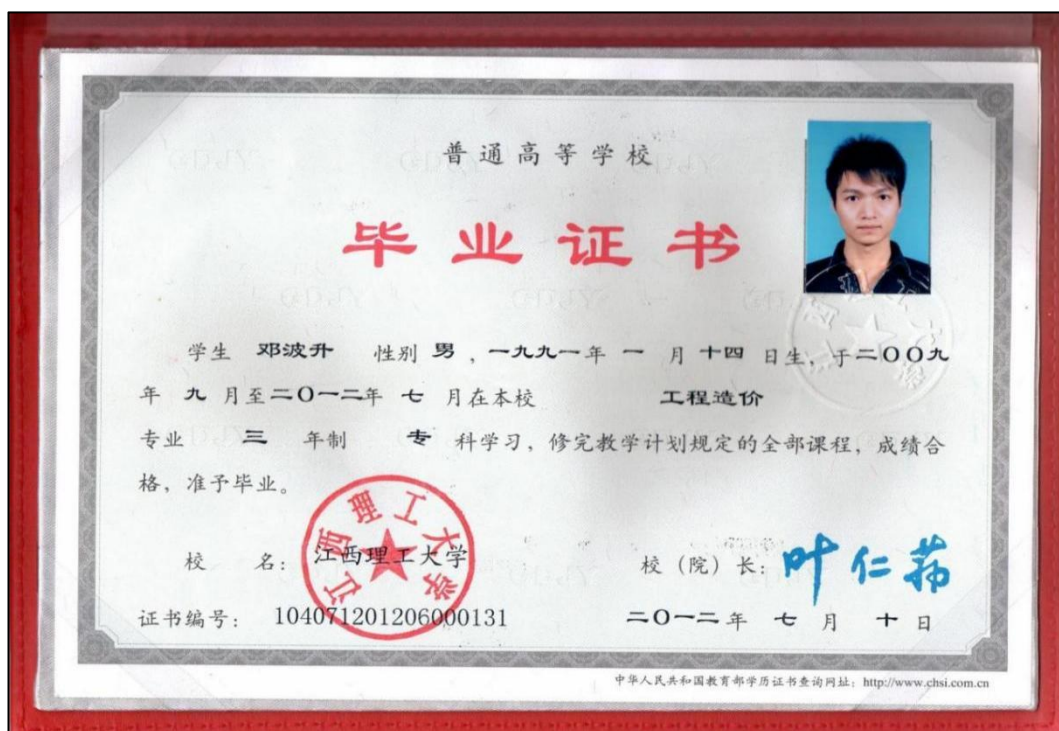 普通高等学校
毕业证书
学生 邓波升 性别 男，一九九一年 一 月 十四 日生，于二〇〇九
年 九 月至二〇一二年 七 月在本校 工程造价
专业 三 年制 专 科学习，修完教学计划规定的全部课程，成绩合
格，准予毕业。
江西理工大学
校 名：江西理工大学 校（院）长：叶仁荪
证书编号：104071201206000131 二〇一二年 七 月 十 日
中华人民共和国教育部学历证书查询网址：http://www.chsi.com.cn